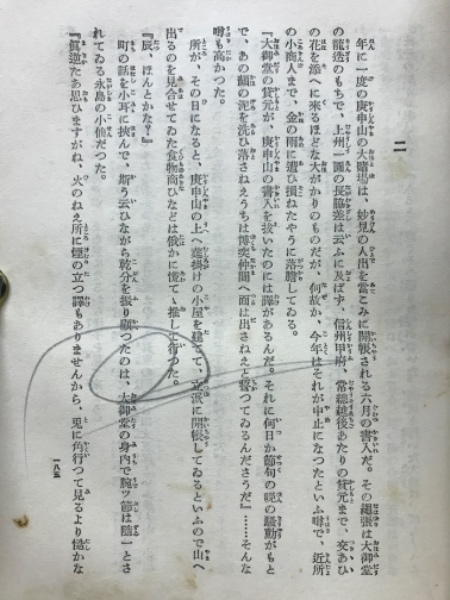 二
年に一度の庚申山の大賭場は、妙見の人出を當こみに開帳される六月の書入だ。その繩張は大御堂
の龍造のもちで、上州一圓の長脇差は云ふに及ばず、信州甲府、常總越後あたりの貸元まで、交あひ
の花を添へに來るほどな大がかりのものだが、何故か、今年はそれが中止になつたといふ噂で、近所
の小商人まで、金の雨に遭ひ損ねたやうに落膽してゐる。
『大御堂の貸元が、庚申山の書入を抜いたのには譯があるんだ。それに何日か節句の晩の騷動がもと
で、あの顏の泥を洗ひ落さねえうちは博奕仲間へ面は出さねえと誓つてゐるんださうだ』……そんな
噂も高かつた。
所が、その日になると、庚申山の上へ莚掛けの小屋を建て、立派に開帳してゐるといふので山へ
出るのを見合せてゐた食物商ひなどは俄かに慌てゝ推して行つた。
『辰、ほんとかな？』
町の話を小耳に挾んで、斯う云ひながら乾分を振り顧つたのは、大御堂の身内で腕ツ節は隨一とさ
れてゐる永島の小仙だつた。
『眞逆たあ思ひますがね、火のねえ所に煙の立つ譯もありませんから、兎に角行つて見るより慥かな
一八五